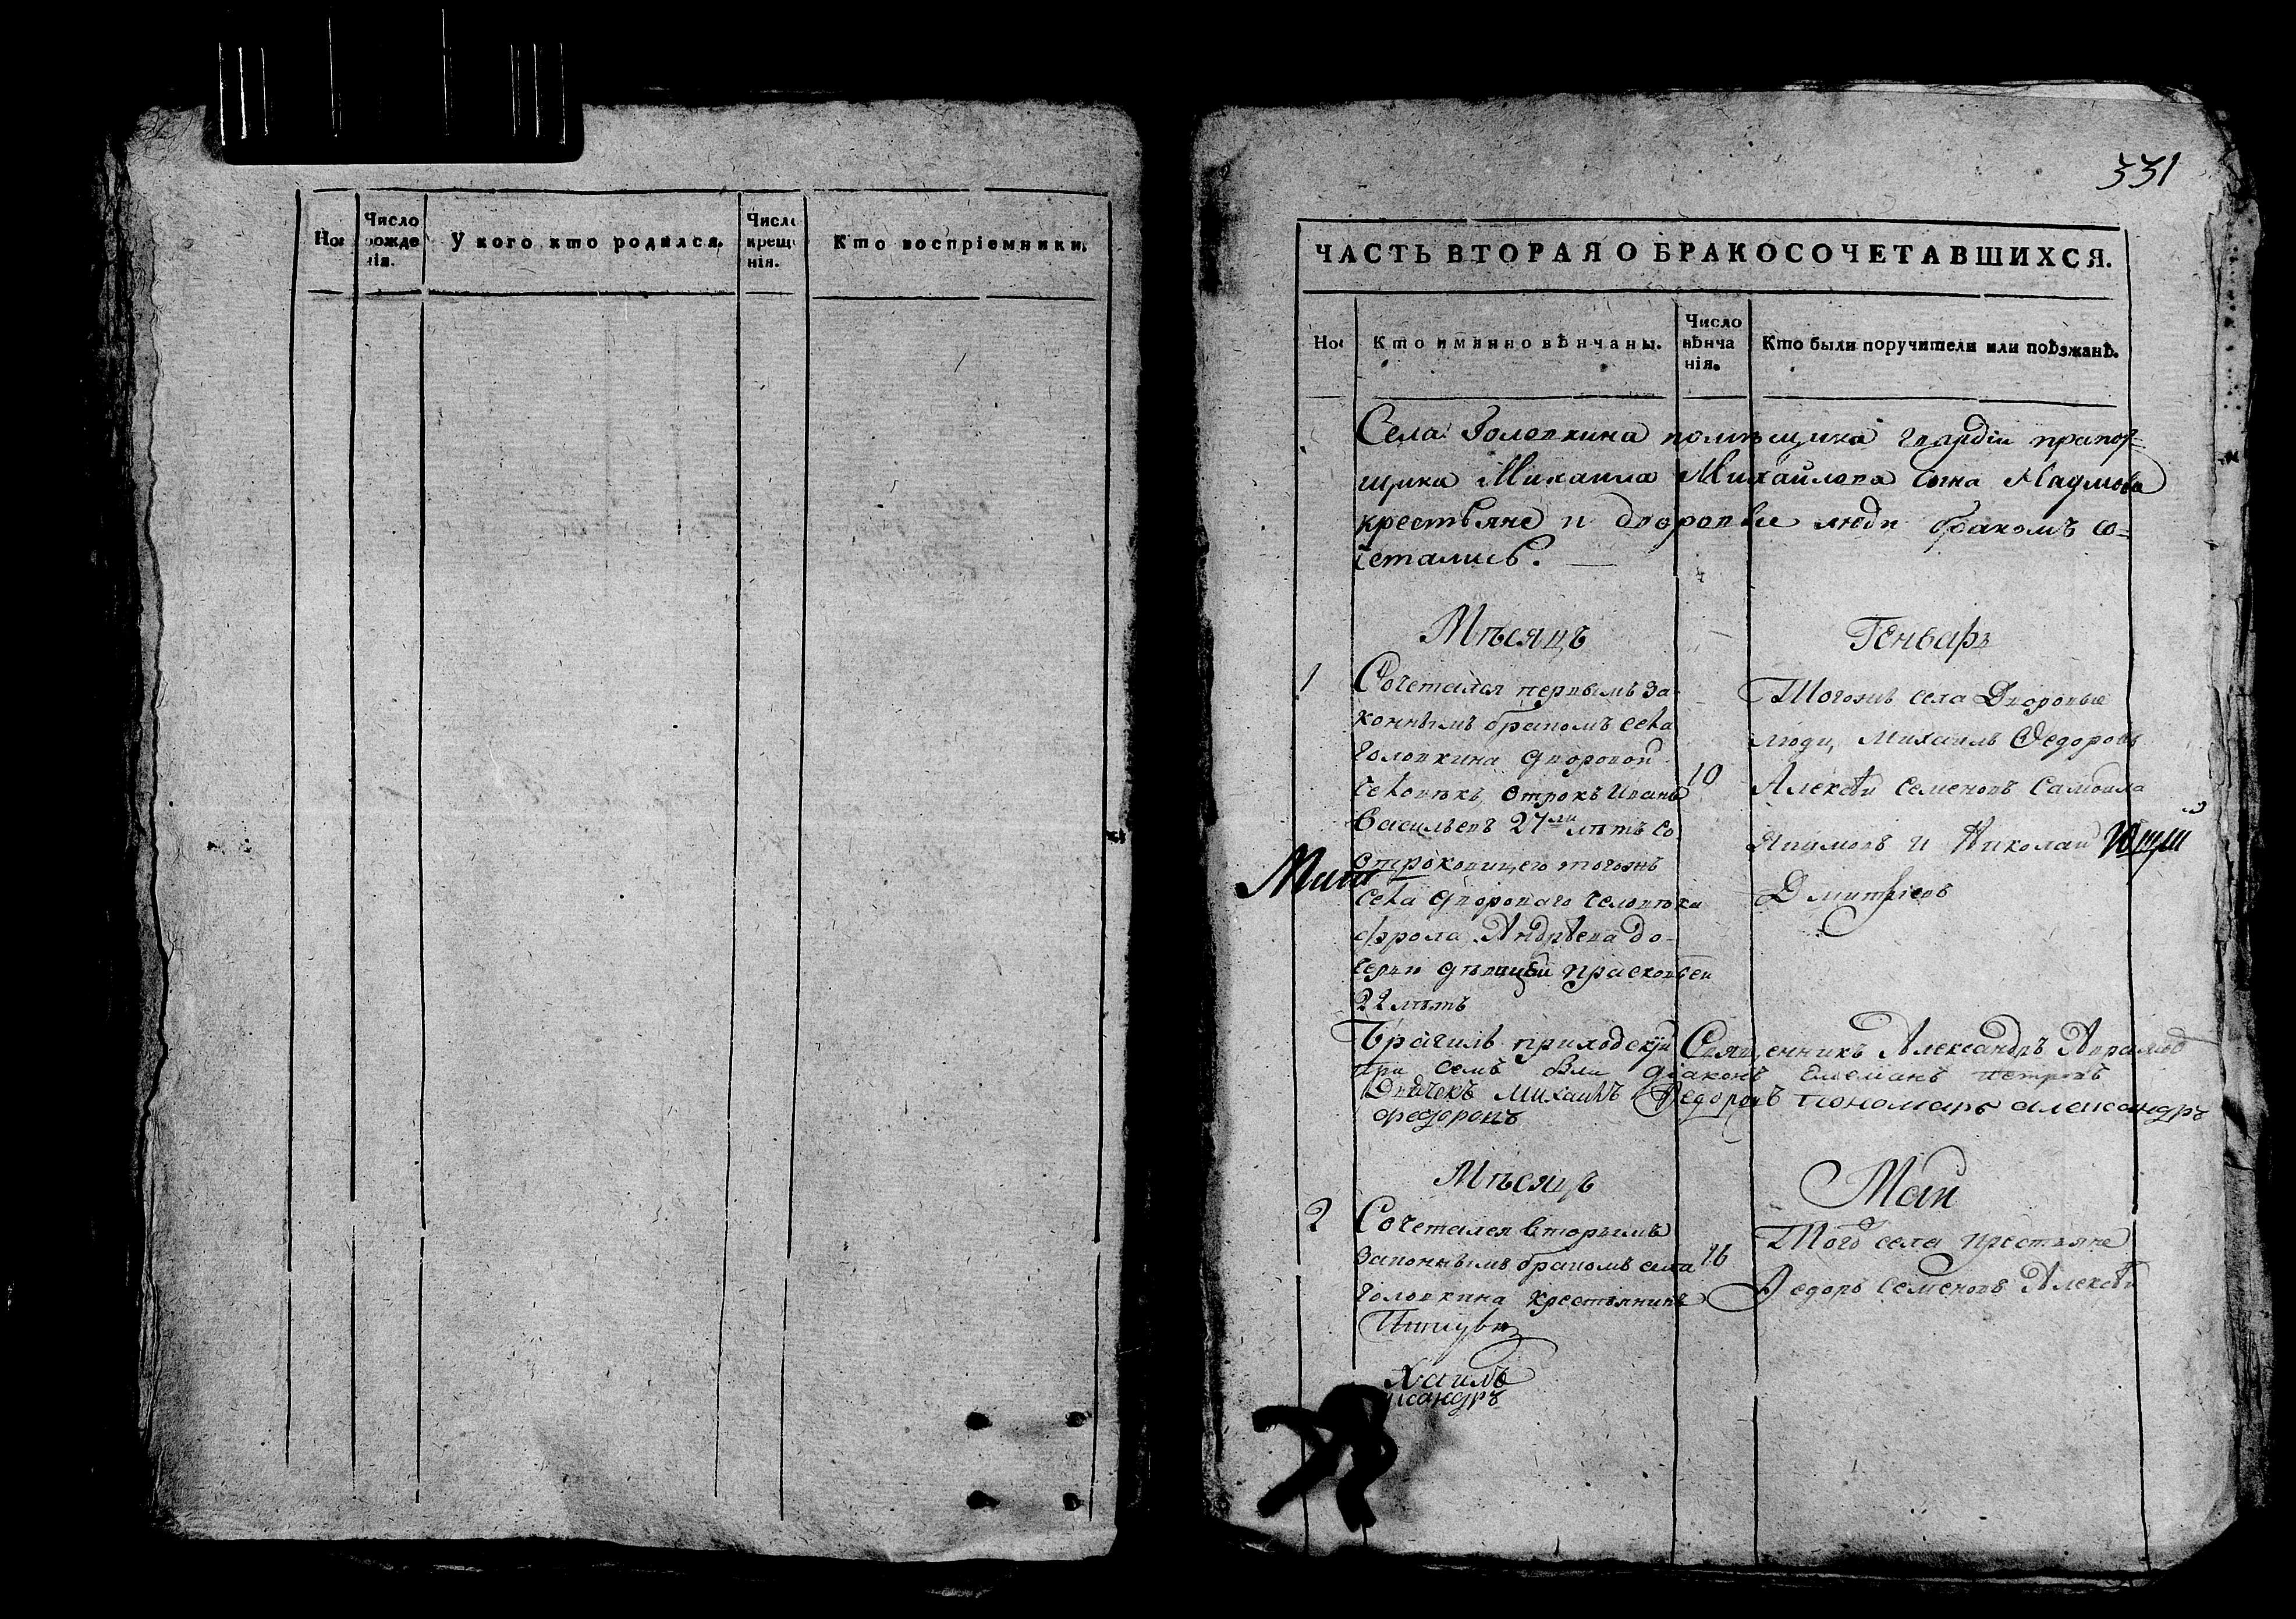 Но
Число рожде нія.
У кого кто родился.
Число крещ нія.
Кто воспріемники.
331
ЧАСТЬ ВТОРАЯ О БРАКОСОЧЕТАВШИХСЯ.
Но
Кто имянно вѣнчаны.
Число вѣнча нія.
Кто были поручители или поѣзжанѣ.
Села Головкина помѣщика гвардіи прапор-
щика Михаила Михайлова сына Наумова
крестьяне и дворовые люди бракомъ со-
четались.
Мѣсяцъ
Генварь
1
Сочетался первымъ за
коннымъ бракомъ села
Головкина дворовой
человѣкъ отрокъ Иванъ
Васильевъ 27ми лѣтъ со
отроковицею тогожъ
села двороваго человѣка
Фрола Андрѣева до-
черью дѣвицей Прасковьеи
22 лѣтъ
10
Тогожъ села Дворовые
люди, Михаилъ Федоровъ
Алексѣи Семеновъ Самоила
Якимовъ и Николаи
Дмитріевъ
Брачилъ приходскій Священникъ Александръ
при семъ были діаконъ Емелианъ Петровъ
Дьячекъ Михаилъ Федоровъ пономарь Александръ
Федоровъ
Мѣсяцъ
Маи
2
Сочетался вторымъ
законнымъ бракомъ села
Головкина крестьянинъ
16
Того села крестьяне
Федоръ Семеновъ Алексѣи
хаилъ
ксандръ